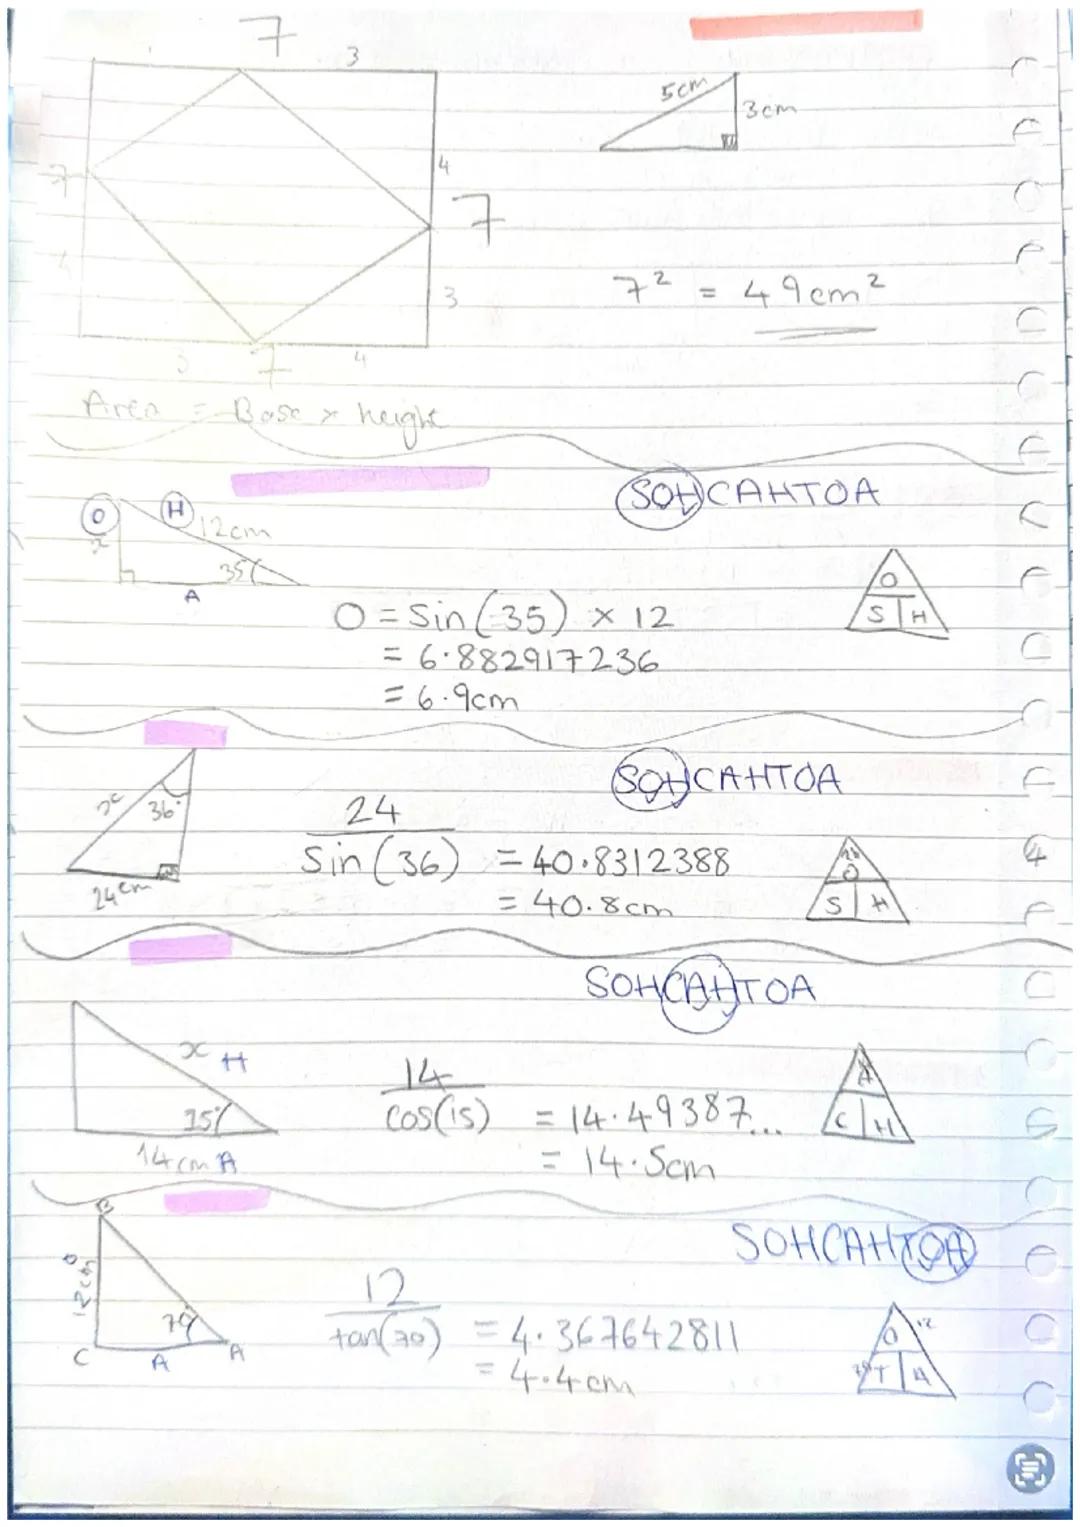 7
3
5cm
3cm
4
7
7
7² = 49cm²
4
3
3
7
4
Area = Base x height
SOHCAHTOA
O
H
12cm
x
35
A
O
S H
O = Sin(35) × 12
= 6.882917236
= 6.9cm
SOHCAHTOA
x
36°
24cm
24
Sin(36) = 40.8312388
= 40.8cm
O
S H
SOHCAHTOA
x H
15°
14cm A
14
cos(15) = 14.49387...
= 14.5cm
A
C H
SOHCAHTOA
B
O
12cm
70
C A A
12
tan(70) = 4.367642811
= 4.4cm
O 12
70 T A